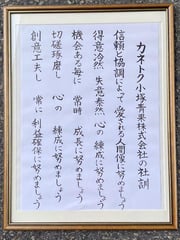 カネトク小塚青果株式会社の社訓
信頼と協調によって愛される人間像に努めましょう
得意冷然 失意泰然 心の練成に努めましょう
機会ある毎に 常時 成長に努めましょう
切磋琢磨し 心の 練成に努めましょう
創意工夫し 常に 利益確保に努めましょう